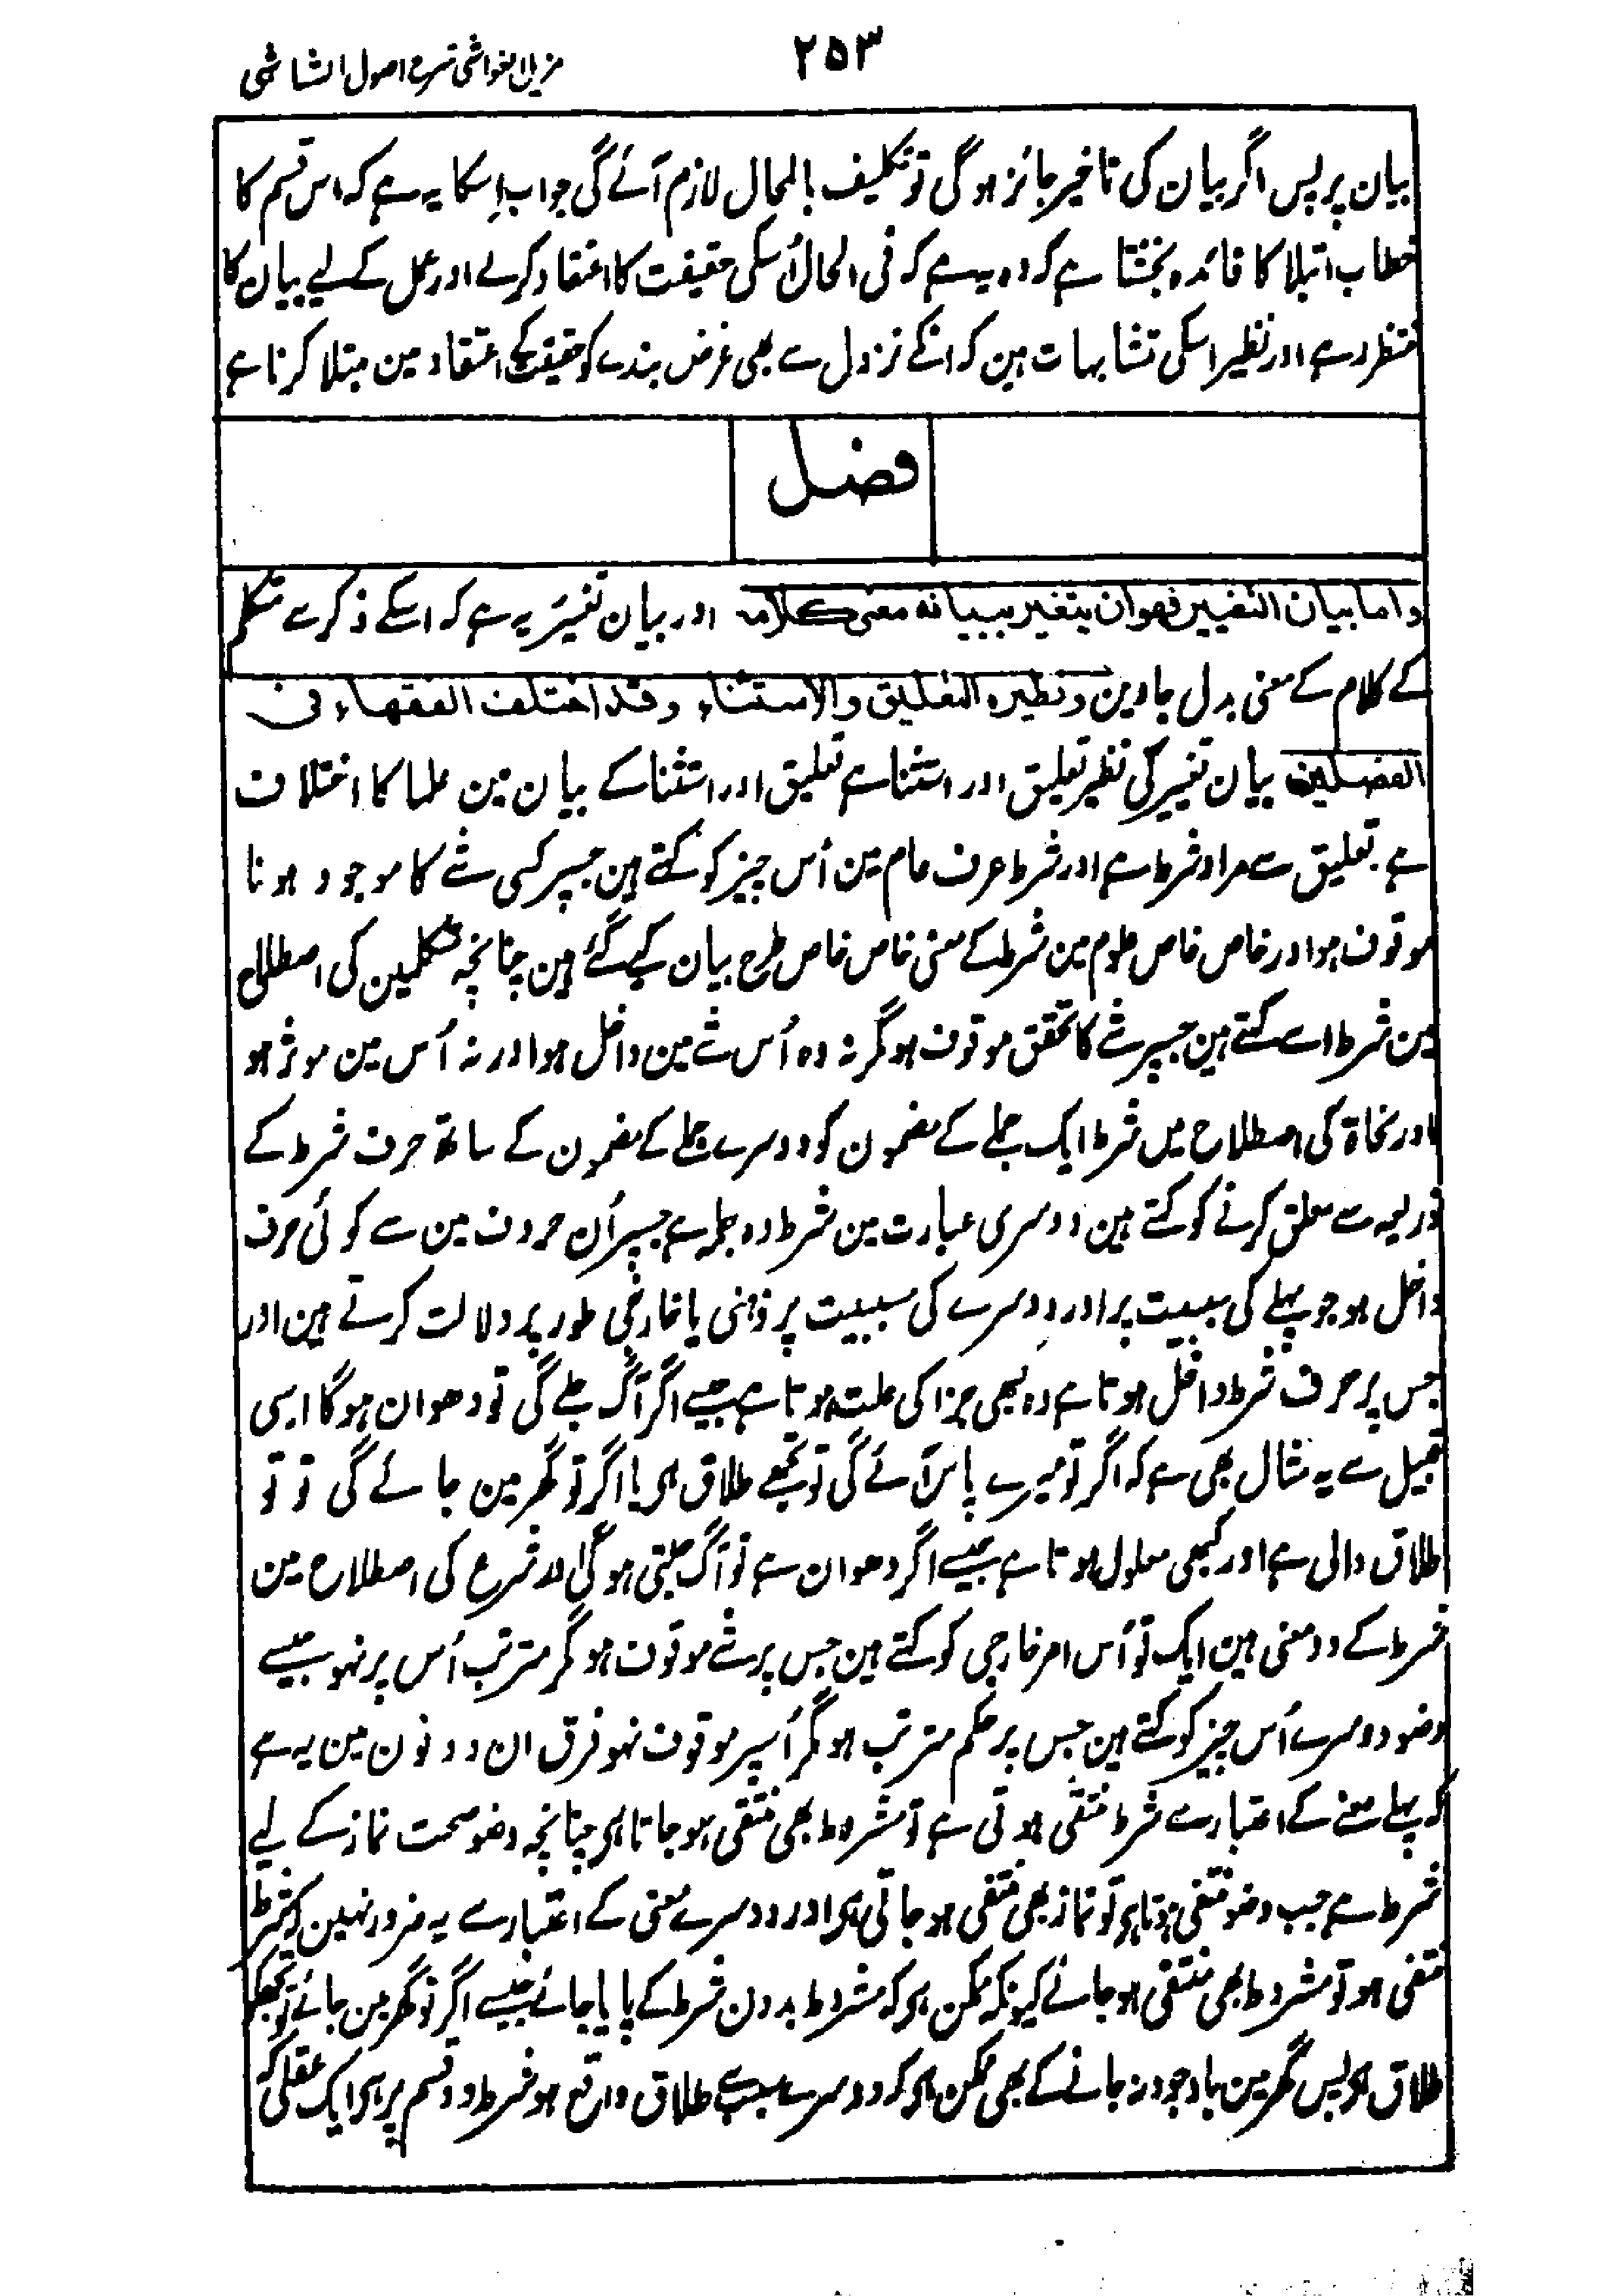 ۲۵۳
مزیل الغواشی شرح اصول الشاشی
بیان پر پس اگر بیان کی تاخیر جائز ہوگی تو تکلیف بالمحال لازم آئے گی جواب اِسکا یہ ہے کہ اس قسم کا
خطاب ابتلا کا فائدہ بخشتا ہے کہ وہ یہ ہے کہ فی الحال اُسکی حقیقت کا اعتقاد کرلے اور عمل کے لیے بیان کا
منتظر رہے اور نظیر اسکی متشابہات ہین کہ انکے نزول سے بھی غرض بندے کو حقیقت کے اعتقاد مین مبتلا کرنا ہے
فصل
واما بیان التغییر فھوان یتغیر ببیانہ معنی کلامہ اور بیان تغییر یہ ہے کہ اسکے ذکر سے متکلم
کے کلام کے معنی بدل جاوین ونظیرہ التعلیق والاستثناء وقد اختلف الفقھاء فی
الفصلین بیان تغییر کی نظیر تعلیق اور استثنا ہے تعلیق اور استثنا کے بیان مین علما کا اختلاف
ہے۔ تعلیق سے مراد شرط ہے اور شرط عرف عام مین اُس چیز کو کہتے ہین جسپر کسی شے کا موجود ہونا
موقوف ہو اور خاص خاص علوم مین شرط کے معنی خاص خاص طرح بیان کیے گئے ہین چنانچہ متکلمین کی اصطلاح
مین شرط اسے کہتے ہین جسپر شے کا تحقق موقوف ہو مگر نہ وہ اُس شے مین داخل ہو اور نہ اُس مین موثر ہو
اور نحاۃ کی اصطلاح میں شرط ایک جملے کے مضمون کو دوسرے جملے کے مضمون کے ساتھ حرف شرط کے
ذریعہ سے معلق کرنے کو کہتے ہین دوسری عبارت مین شرط وہ جملہ ہے جسپر اُن حروف مین سے کوئی حرف
داخل ہو جو پہلے کی سببیت پر اور دوسرے کی مسببیت پر ذہنی یا خارجی طور پر دلالت کرتے ہین اور
جس پر حرف شرط داخل ہوتا ہے وہ کبھی جزا کی علت ہوتا ہے جیسے اگر آگ جلے گی تو دھوان ہوگا اسی
قبیل سے یہ مثال بھی ہے کہ اگر تو میرے پاس آئے گی تو تجھے طلاق ہی یا اگر تو گھر مین جائے گی تو تو
طلاق والی ہے اور کبھی معلول ہوتا ہے جیسے اگر دھوان ہے تو آگ جلتی ہوگی اور شرع کی اصطلاح مین
شرط کے دو معنی ہین ایک تو اُس امر خارجی کو کہتے ہین جس پر شے موقوف ہو مگر مترتب اُس پر نہو جیسے
وضو دوسرے اُس چیز کو کہتے ہین جس پر حکم مترتب ہو مگر اُسپر موقوف نہو فرق ان دونون مین یہ ہے
کہ پہلے معنے کے اعتبار سے شرط منتفی ہوتی ہے تو مشروط بھی منتفی ہو جاتا ہی چنانچہ وضو صحت نماز کے لیے
شرط ہے جب وضو منتفی ہوتا ہی تو نماز بھی منتفی ہو جاتی ہی اور دوسرے معنی کے اعتبار سے یہ ضرور نہین کہ شرط
منتفی ہو تو مشروط بھی منتفی ہو جائے کیونکہ ممکن ہی کہ مشروط بدون شرط کے پایا جائے جیسے اگر تو گھر مین جائے تو تجھکو
طلاق ہی پس گھر مین باوجود نہ جانے کے بھی ممکن ہی کہ دوسرے سبب سے طلاق واقع ہو شرط دو قسم پر ہی ایک عقلی کہ